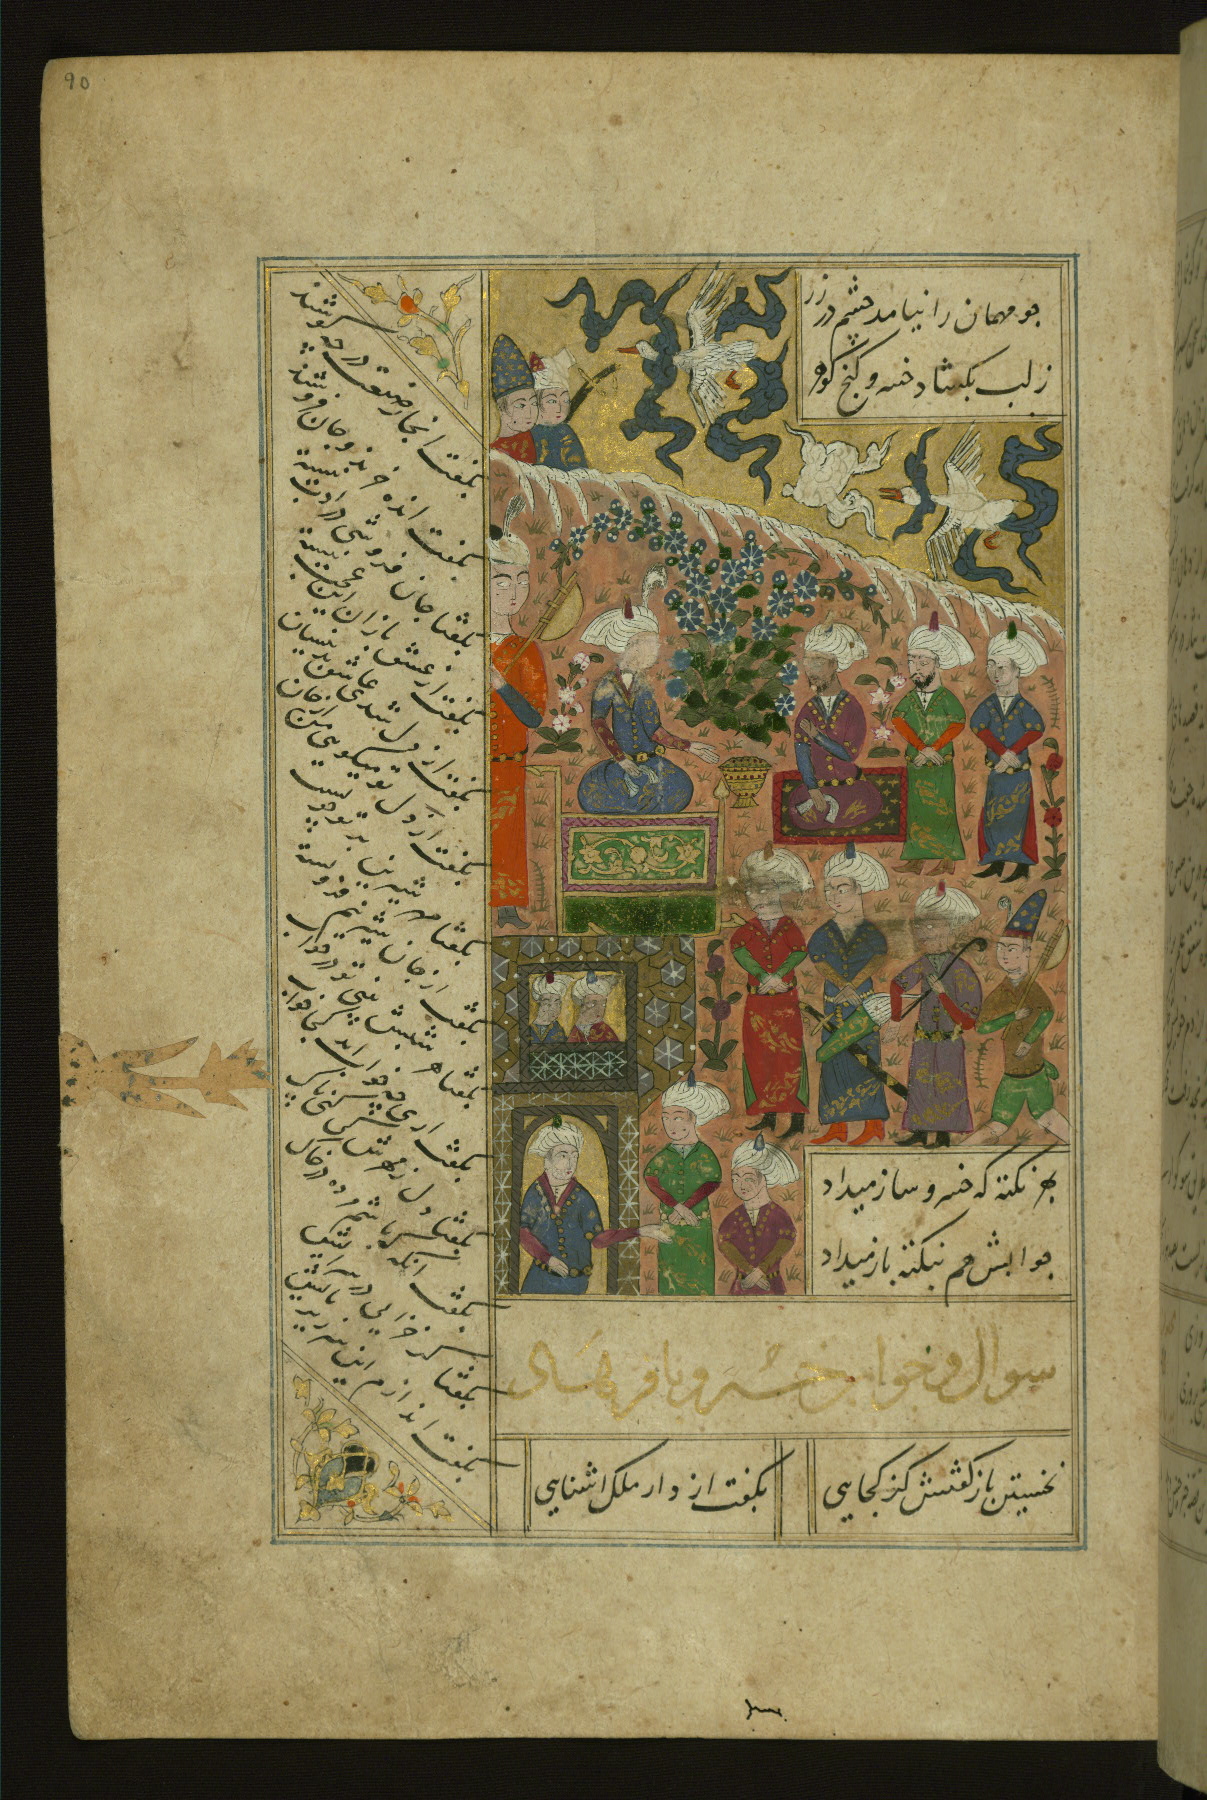 90
چو مهمان را نیامد چشم در زر
ز لب بگشاد خسرو گنج گوهر
بهر نکته که خسرو ساز میداد
جوابش هم بنکته باز میداد
سوال و جواب خسرو با فرهاد
نخستین باز گفتش کز کجایی
بگفت از دار ملک اشنایی
بگفت انجا ز صنعت در چه کوشند
بگفت انده خرند و جان فروشند
بگفتا جان فروشی در ادب نیست
بگفت از عشق بازان این عجب نیست
بگفت از دل شدی عاشق بدینسان
بگفت از دل تو میگویی من از جان
بگفتا شیرین بر تو چونست
بگفت از جان شیرینم فزونست
بگفتا هر شبش بینی تو در خواب
بگفت اری چو خواب اید کجا خواب
بگفتا دل ز مهرش کی کنی پاک
بگفت انگه که باشم مرده در خاک
بگفتا گر خرامی در سرایش
بگفت اندازم این سر زیر پایش